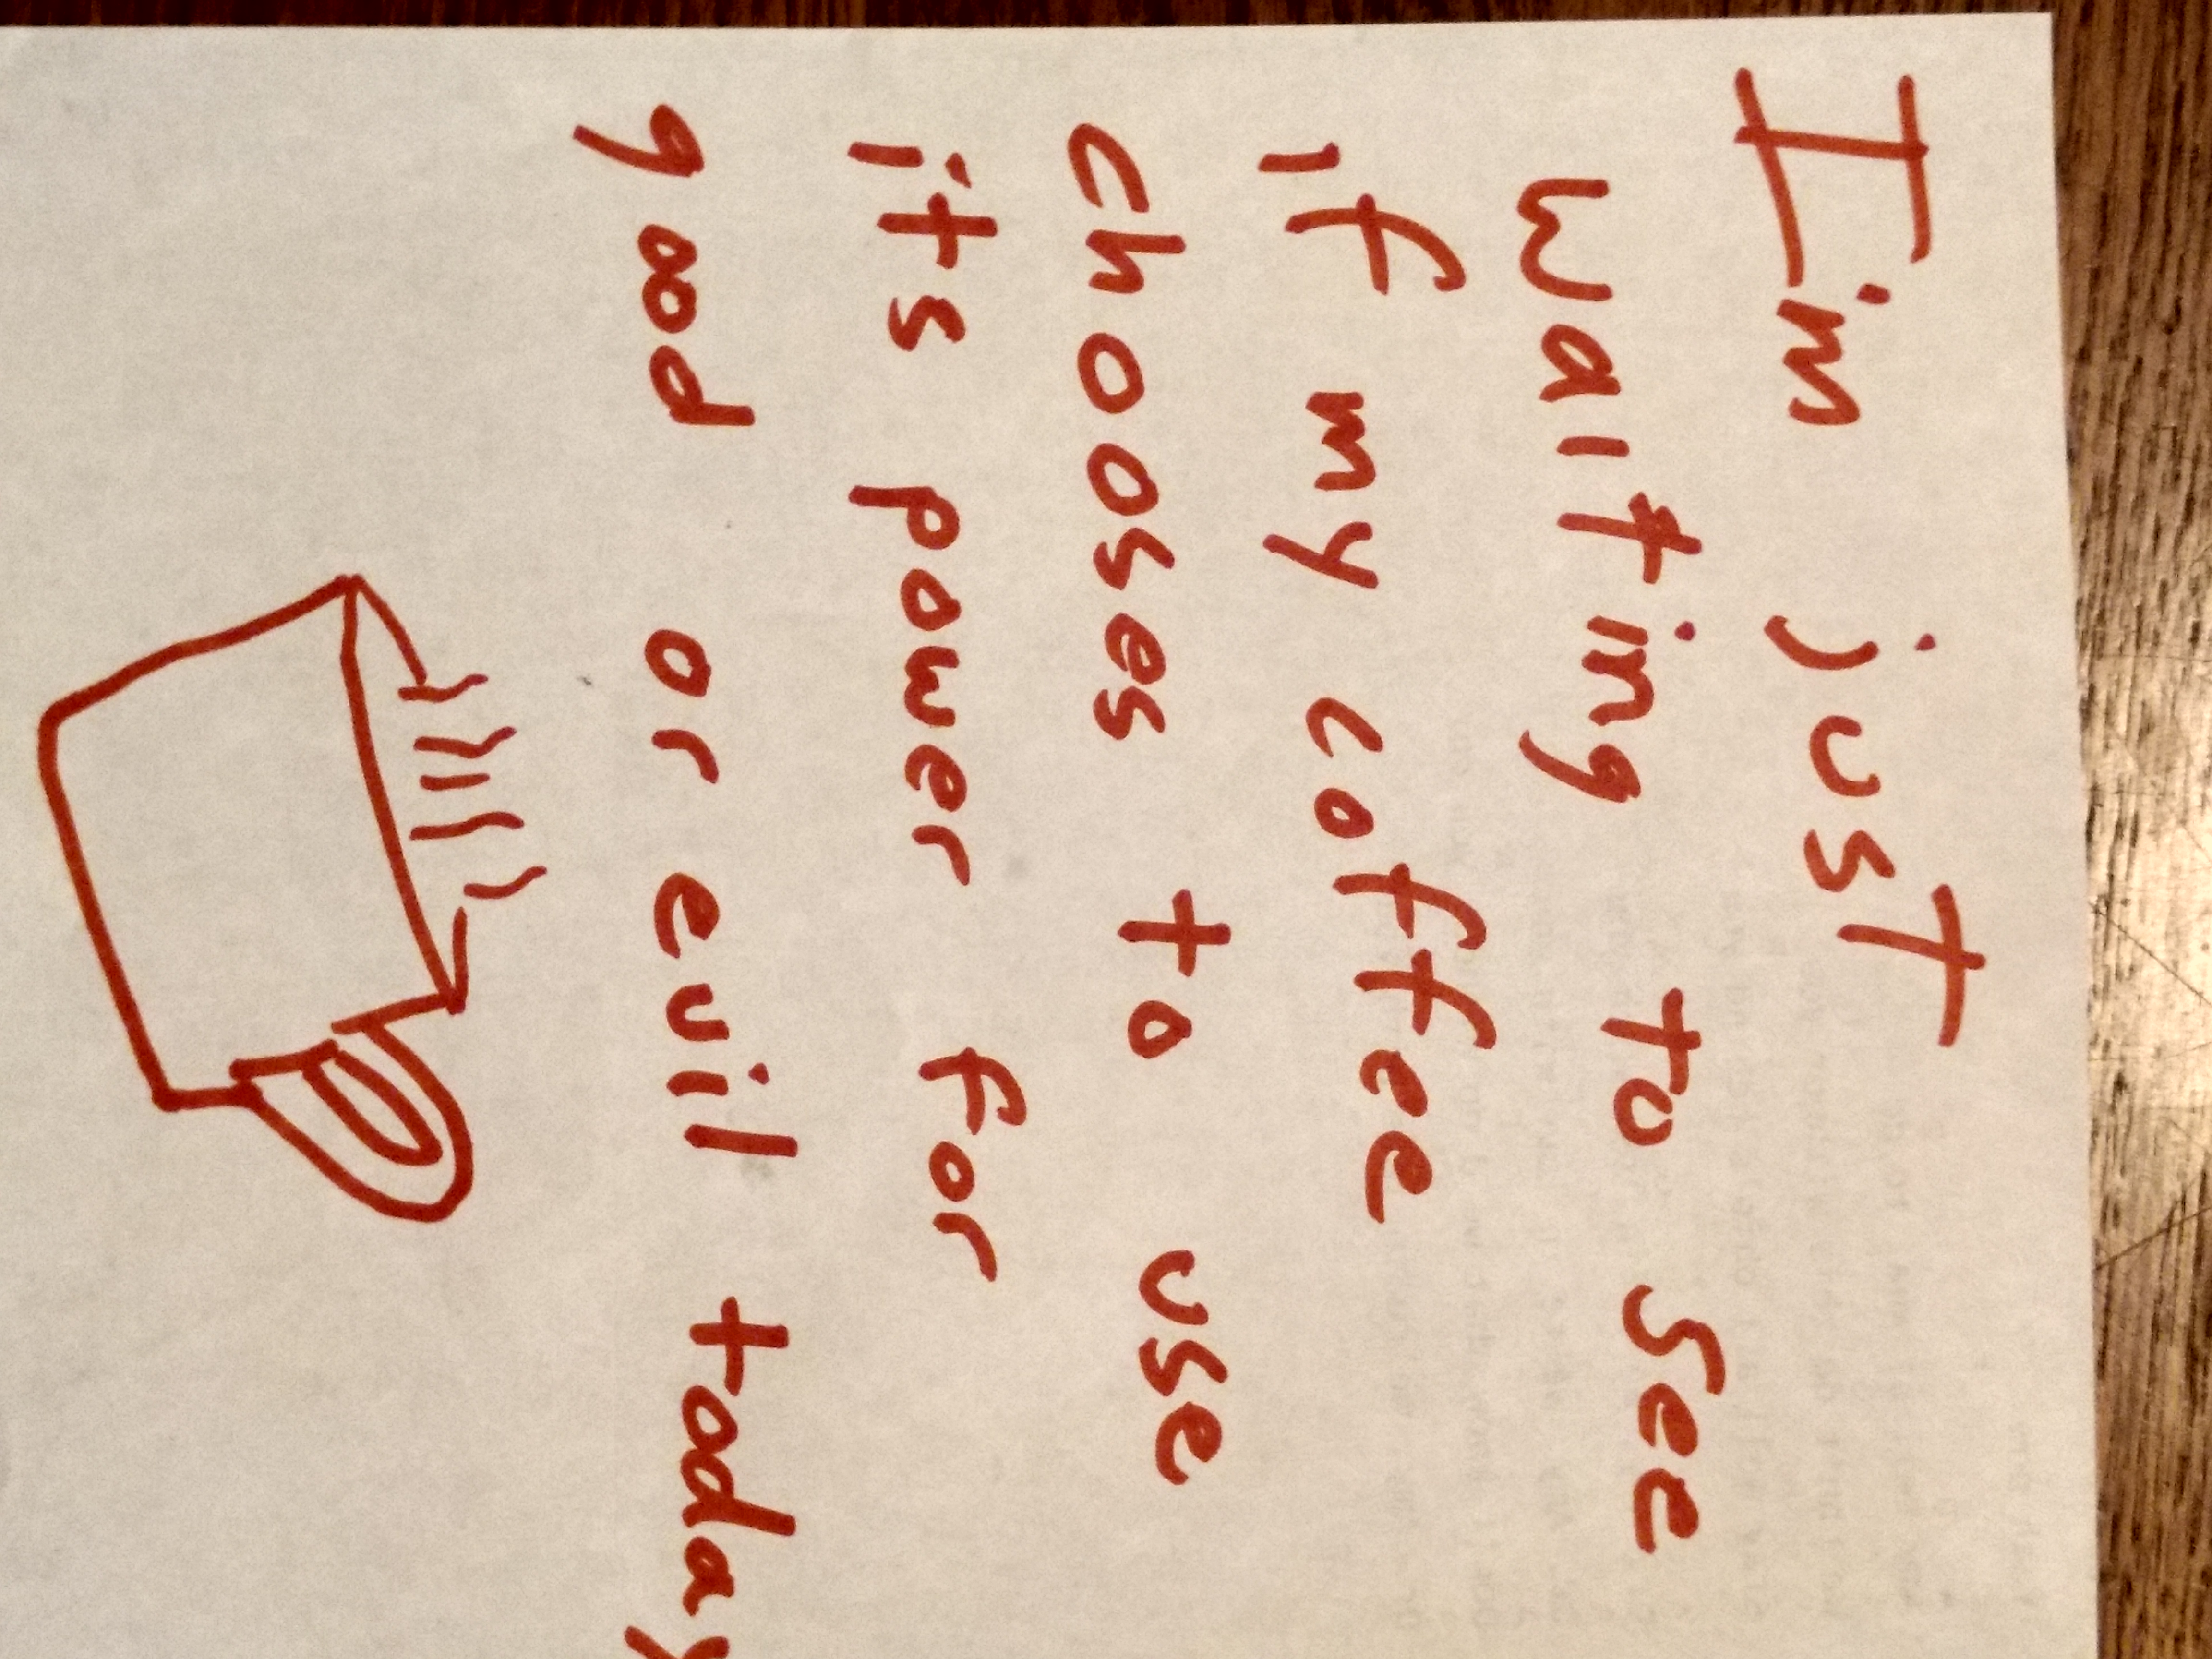 I'm just
waiting to see
if my coffee
chooses to use
its power for
good or evil today